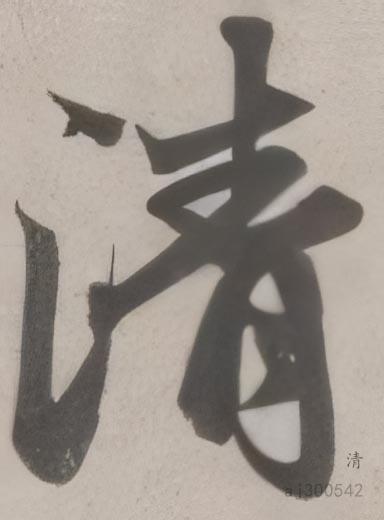 清
清
aj300542